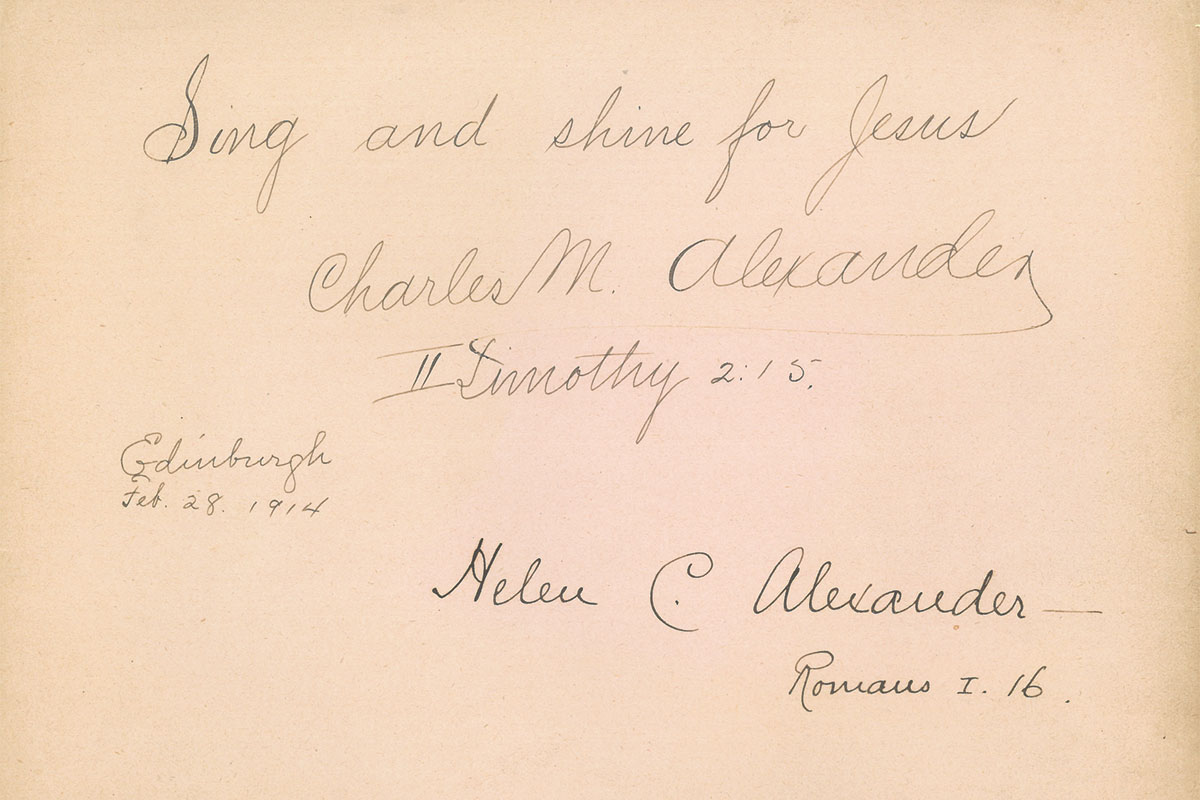 Sing and shine for Jesus
Charles M. Alexander
II Timothy 2:15.
Edinburgh
Feb. 28. 1914
Helen C. Alexander
Romans I. 16.